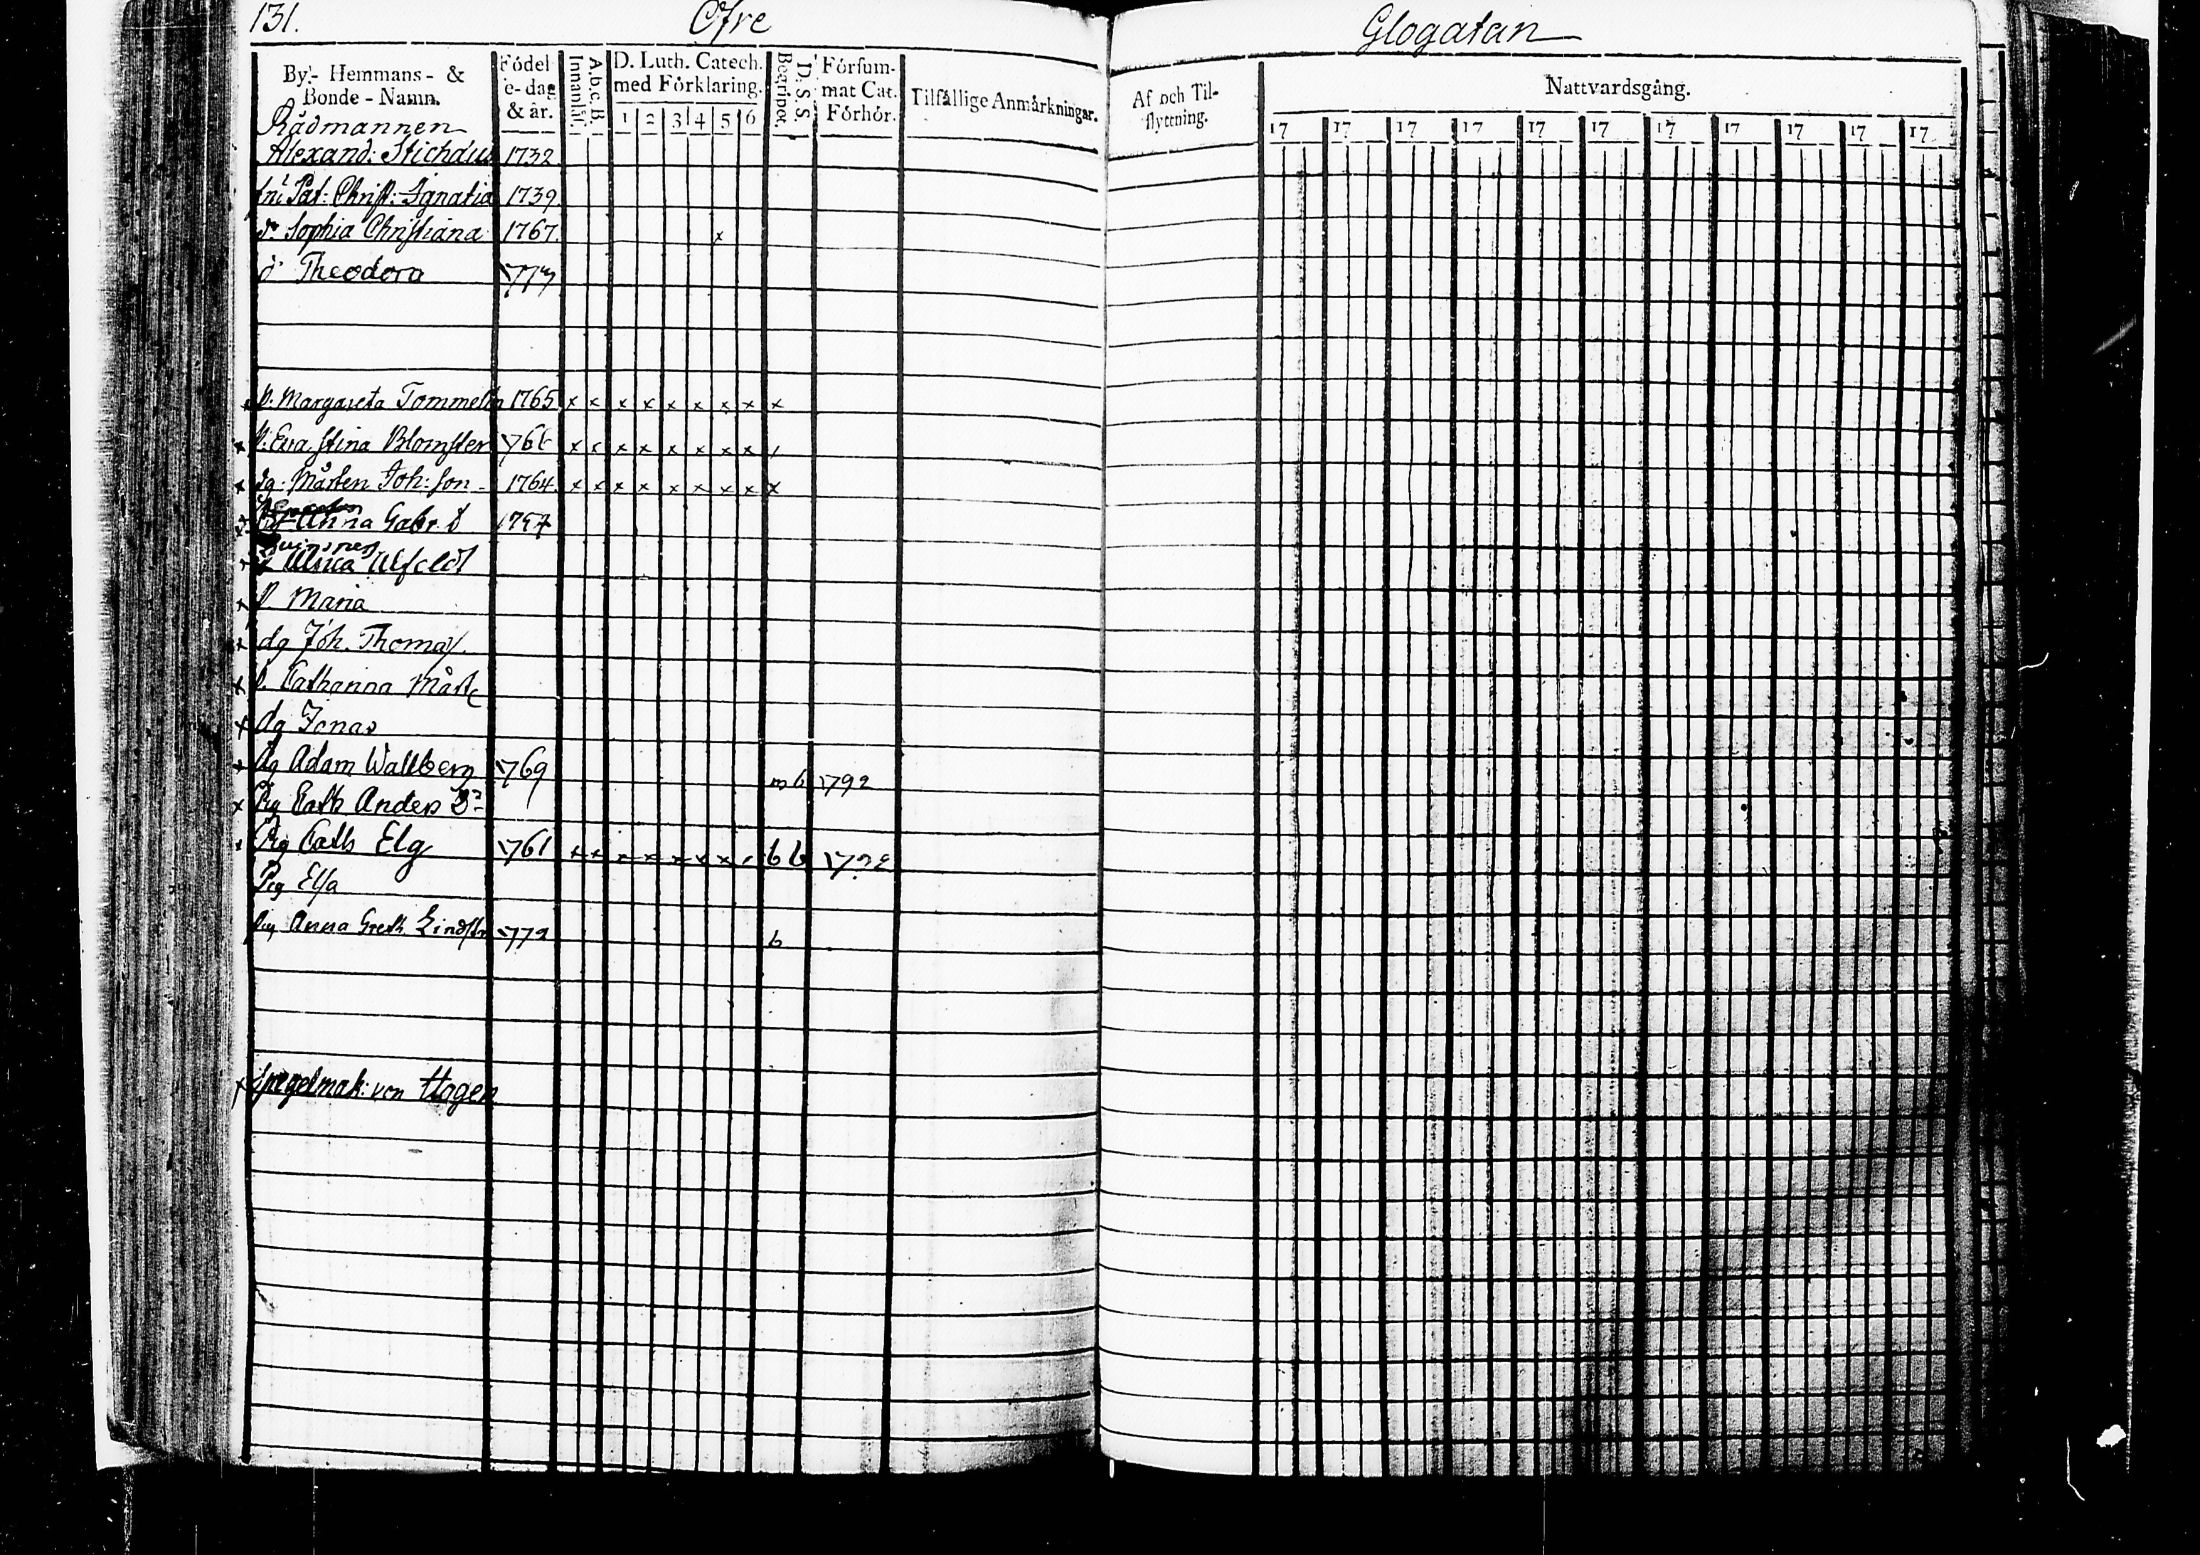 131.
Öfre
Glogatan
By- Hemmans- &
Bonde-Namn.
Födel
se-dag
& år.
A. b. c. B.
Innanläs.
D. Luth. Catech.
med Förklaring.
1 2 3 4 5 6
D. S. S.
Begripet.
Försum-
mat Cat.
Förhör.
Tilfällige Anmärkningar.
Af och Til-
flyttning.
Nattvardsgång.
17 17 17 17 17 17 17 17 17 17 17
Rådmannen
Alexand: Stichæus 1732
Christ: Ignatia 1739
Sophia Christiana 1767. x
Theodora 1773
P. Margareta Tommelin 1765 x x x x x x x x x
P. Eva Stina Blomster 1766 x x x x x x x x
dg: Mårten Joh: son 1764. x x x x x x x x x
Anna Gabr. D
Ulrica Ulfeldt
P. Maria
dg Joh. Thomas
P. Catharina
dg Jonas
dg Adam Wallberg 1769 1792
Pig Cath Anders Dr
Pig Cath Elg 1761 x x x x x x x b b 1792
Pig Elsa
Pig Anna Greth. Lindstr 1772 b
x Spegelmak: von Hagen